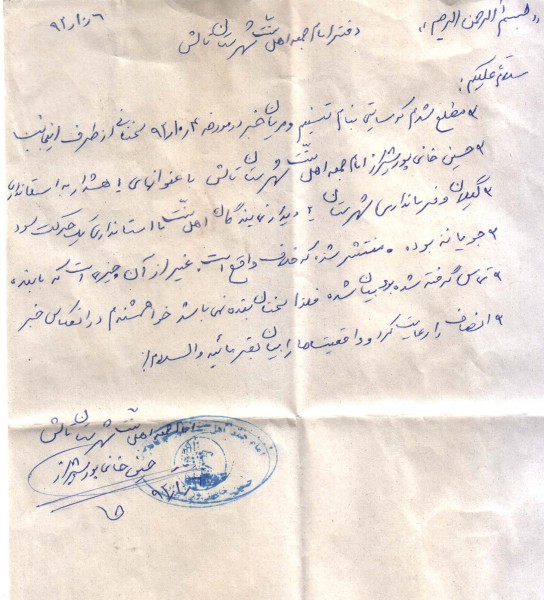 «بسم الله الرحمن الرحیم»
۹۲/۱۰/۶
دفتر امام جمعه اهل سنت شهرستان تالش
سلام علیکم:
مطلع شدم که سایتی بنام تسنیم و مریان خبر در مورخه ۹۲/۱۰/۴ سخنانی از طرف اینجانب
حسین خانی پور شیراز امام جمعه اهل سنت شهرستان تالش با عنوانهای با هشدار به استانداری
گیلان و فرمانداری شهرستان یا دیدار نمایندگان اهل سنت با استانداری یک حرکت سود
جویانه بوده منتشر شد، که خلاف واقع است. غیر از آن چیزی است که با بنده
تماس گرفته شده بود بیان شده فلذا سخنان بنده نمی باشد خواهشمندم در انعکاس خبر
انصاف را رعایت کرد و واقعیتها را بیان بفرمائید والسلام
امام جمعه اهل سنت شهرستان تالش
حسین خانی پور شیراز